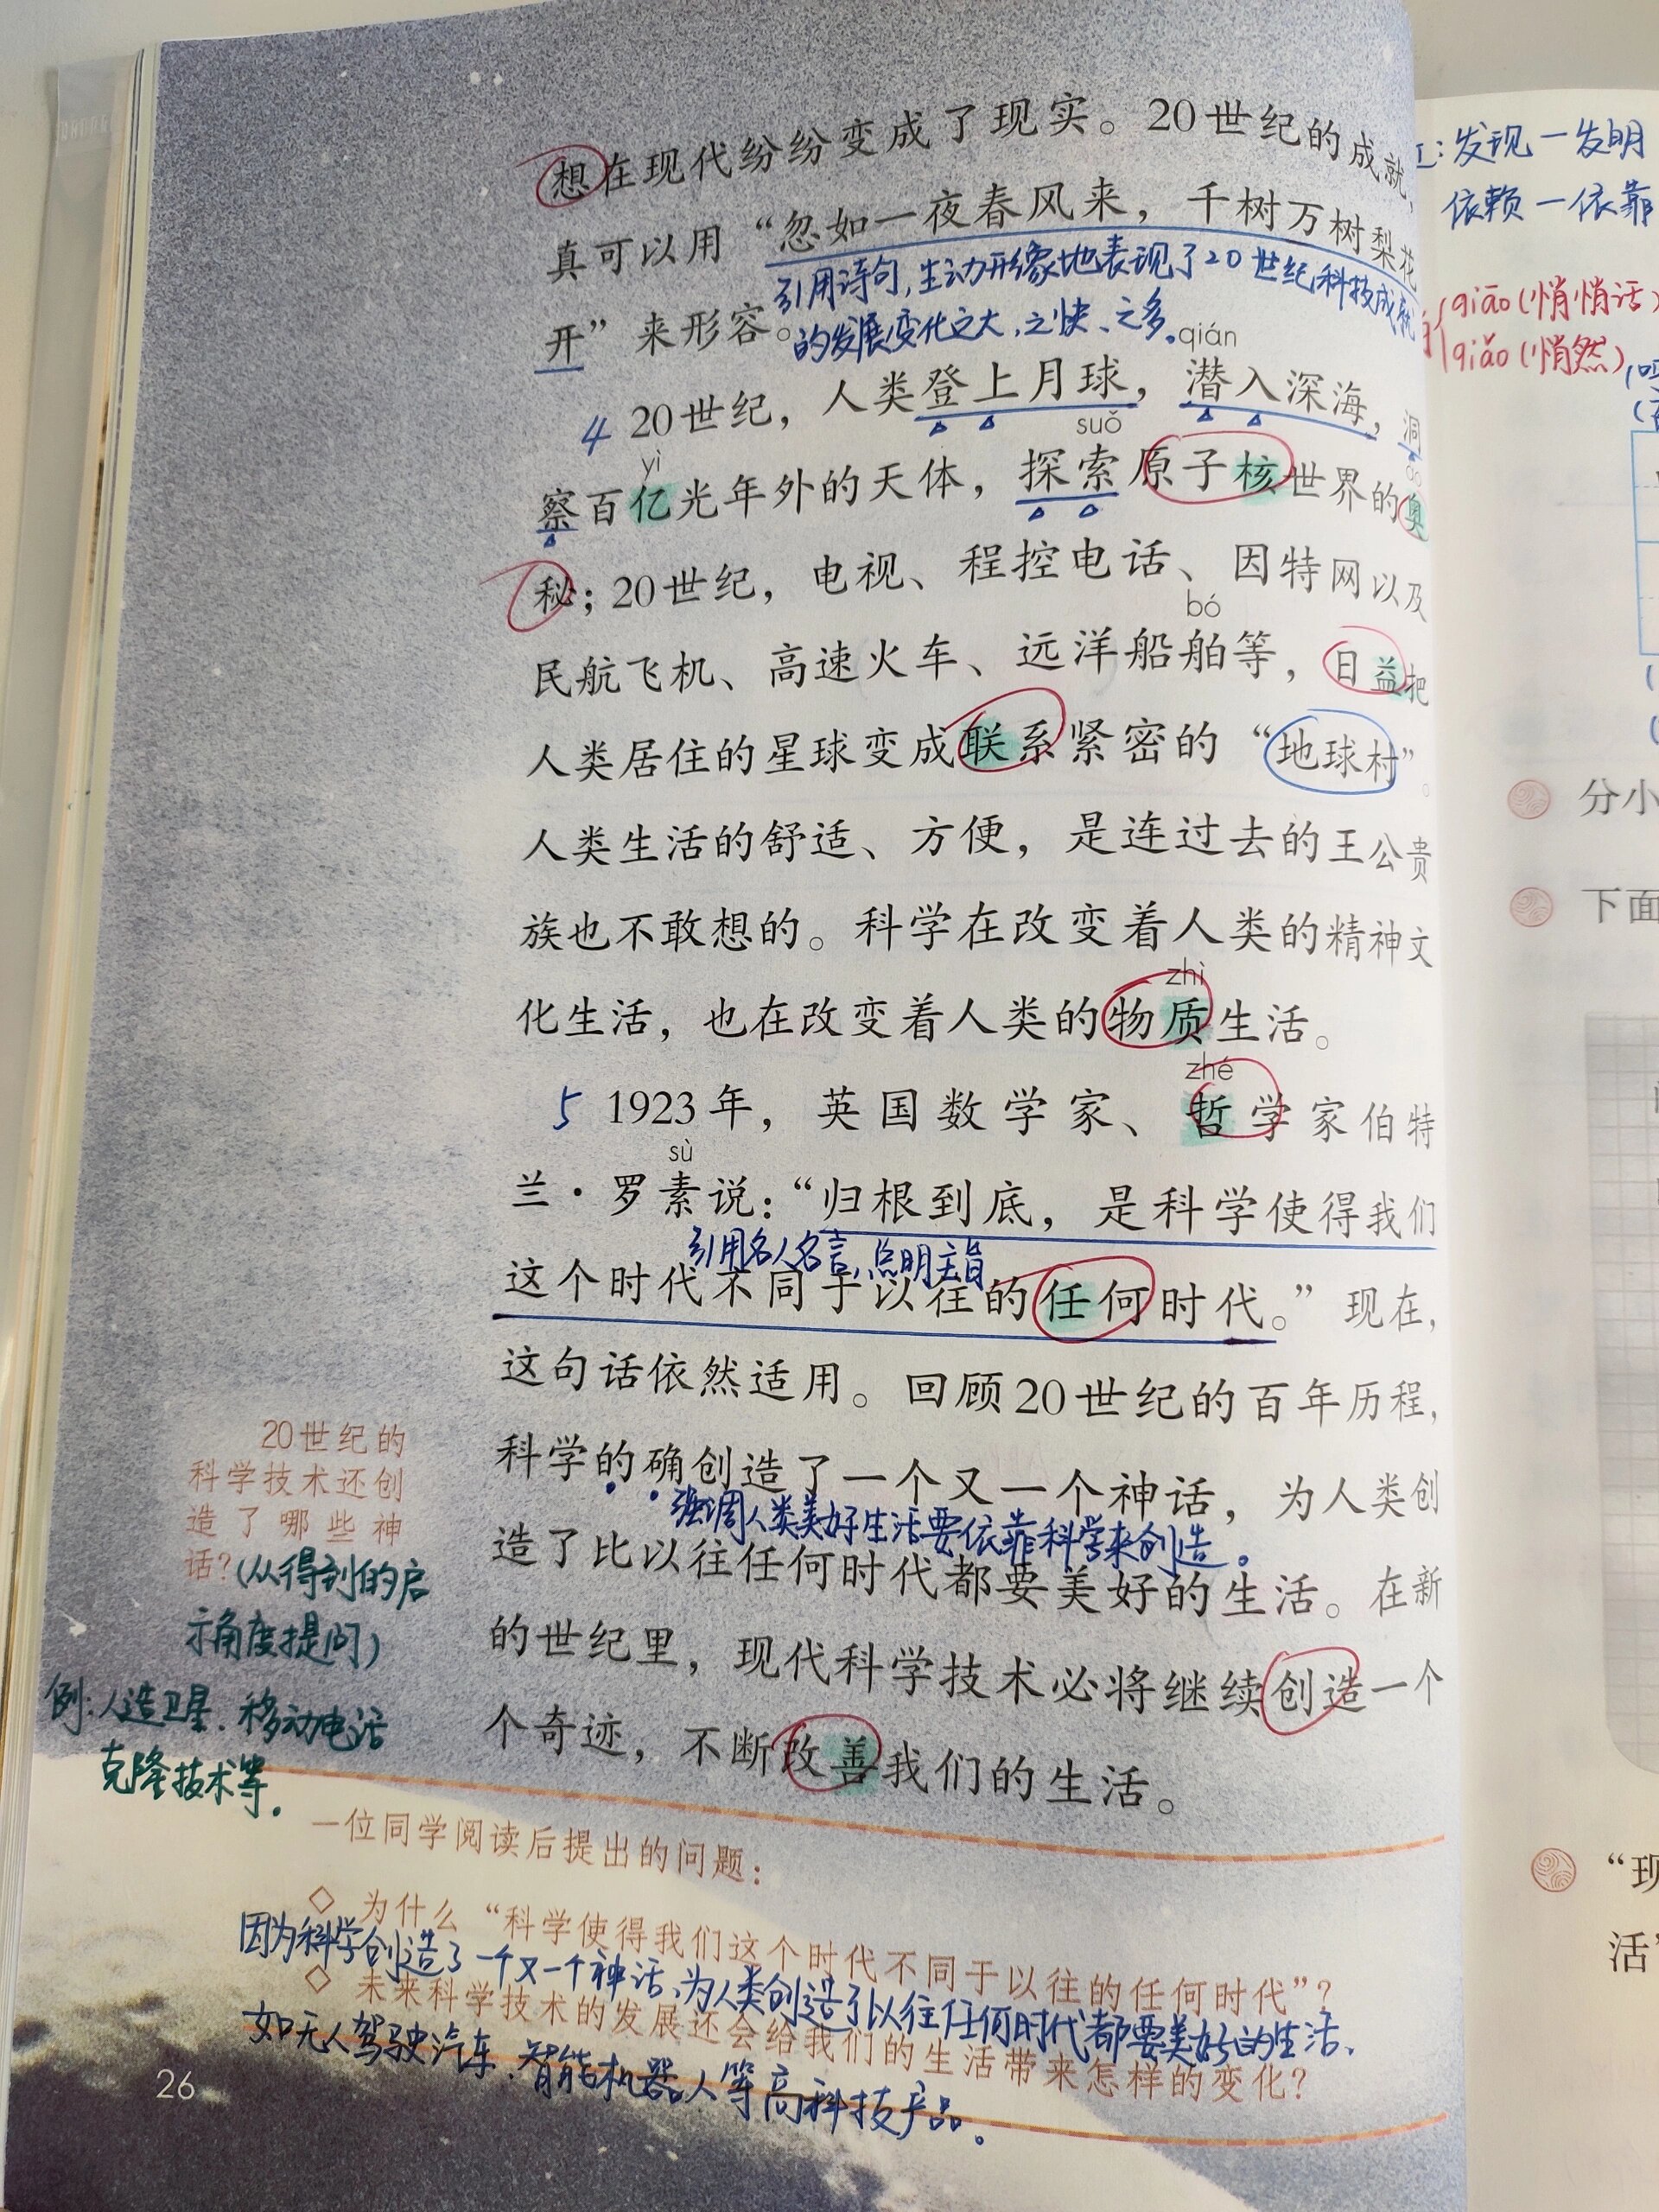 想在现代纷纷变成了现实。20世纪的成就，
真可以用“忽如一夜春风来，千树万树梨花
引用诗句，生动形象地表现了20世纪科技成就
开”来形容。
的发展变化之大、之快、之多。
qián
4 20世纪，人类登上月球，潜入深海，洞
suǒ
yì
察百亿光年外的天体，探索原子核世界的奥
秘；20世纪，电视、程控电话、因特网以及
bó
民航飞机、高速火车、远洋船舶等，日益把
人类居住的星球变成联系紧密的“地球村”。
人类生活的舒适、方便，是连过去的王公贵
族也不敢想的。科学在改变着人类的精神文
zhì
化生活，也在改变着人类的物质生活。
zhé
5 1923年，英国数学家、哲学家伯特
sù
兰·罗素说：“归根到底，是科学使得我们
引用名人名言，点明主旨
这个时代不同于以往的任何时代。”现在，
这句话依然适用。回顾20世纪的百年历程，
科学的确创造了一个又一个神话，为人类创
强调人类美好生活要依靠科学来创造。
造了比以往任何时代都要美好的生活。在新
的世纪里，现代科学技术必将继续创造一个
个奇迹，不断改善我们的生活。
20世纪的
科学技术还创
造了哪些神
话？(从得到的启
示角度提问)
例：人造卫星、移动电话
克隆技术等。
一位同学阅读后提出的问题：
◇ 为什么“科学使得我们这个时代不同于以往的任何时代”？
因为科学创造了一个又一个神话，为人类创造了以往任何时代都要美好的生活、
◇ 未来科学技术的发展还会给我们的生活带来怎样的变化？
如无人驾驶汽车、智能机器人等高科技产品。
26
：发现一发明
依赖一依靠
qiāo(悄悄话)
qiǎo(悄然)
分小
下面
“现
活”